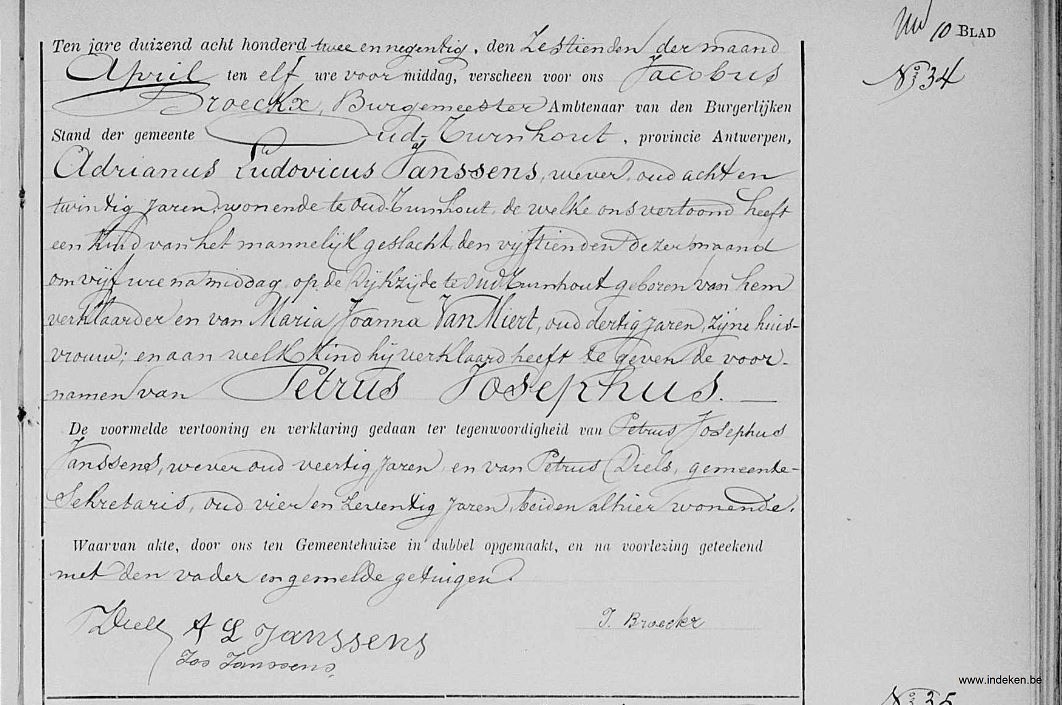 10 BLAD
N° 34
Ten jare duizend acht honderd twee en negentig, den Zestienden der maand
April ten elf ure voor middag, verscheen voor ons Jacobus
Broeckx, Burgemeester Ambtenaar van den Burgerlijken
Stand der gemeente Oud-Turnhout, provincie Antwerpen,
Adrianus Ludovicus Janssens, wever, oud acht en
twintig jaren, wonende te oud-Turnhout, de welke ons vertoond heeft
een Kind van het mannelijk geslacht, den vijftienden dezer maand
om vijf ure na middag, op de Dijkzijde te oud-Turnhout geboren van hem
verklaarder en van Maria Joanna Van Miert, oud dertig jaren, zijne huis-
vrouw; en aan welk Kind hij verklaard heeft te geven de voor-
namen van Petrus Josephus. —
De voormelde vertooning en verklaring gedaan ter tegenwoordigheid van Petrus Josephus
Janssens, wever oud veertig jaren, en van Petrus Diels, gemeente-
Sekretaris, oud vier en zeventig jaren, beiden alhier wonende.
Waarvan akte, door ons ten Gemeentehuize in dubbel opgemaakt, en na voorlezing geteekend
met den vader en gemelde getuigen.
Diels A L Janssens J. Broeckx
Jos Janssens
www.indeken.be
N° 35